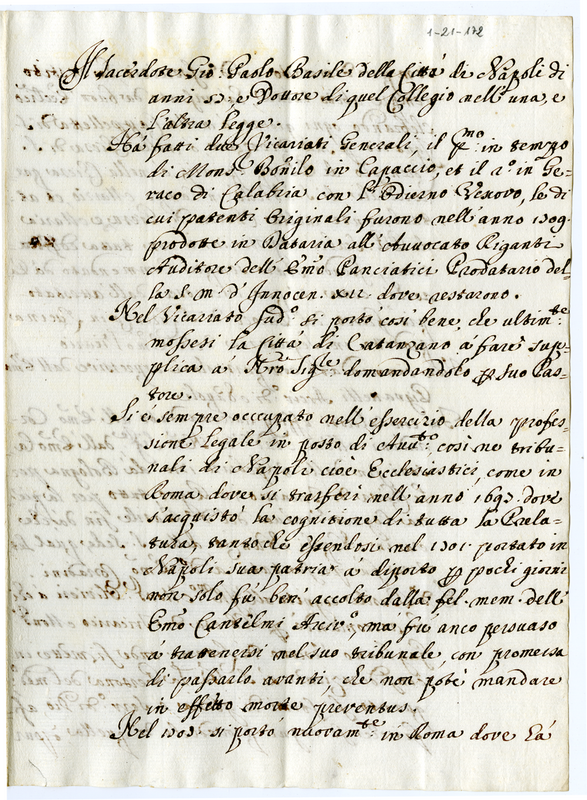 1-21-172
Il Sacerdote Gio: Paolo Basile della Città di Napoli di
anni 52: e Dottore di quel Collegio nell'una, e
L'altra Legge.
Hà fatti due Vicariati Generali, il p.mo in tempo
di Mons.r Bonito in Capaccio, et il 2.o in Ge=
raco di Calabria con L'Odierno Vescovo, le di
cui patenti Originali furono nell'anno 1709.
prodotte in Dataria all'Avvocato Riganti
Auditore dell'Emo Panciatici Prodatario del=
la S. M. d'Innocen. XII. dove restarono.
Nel Vicariato sud.o si portò così bene, che ultim.te
mossesi la Città di Catanzaro a fare sup=
plica à Nrô Sig.re domandandolo p suo Pas=
tore.
Si è sempre occcupato nell'essercizio della profes=
sione Legale in posto di Avv.to così ne tribu=
nali di Napoli cioè Ecclesiastici, come in
Roma dove si trasferì nell'anno 1693. dove
s'acquistò la cognitione di tutta la Prela=
tura, tanto che essendosi nel 1701. portato in
Napoli sua patria à diporto p pochi giorni
non solo fù ben' accolto dalla fel. mem. dell'
Emo Cantelmi Arciv.o, ma fù anco persuaso
a trattenersi nel suo tribunale, con promessa
di passarlo avanti, che non potè mandare
in effetto morte preventus.
Nel 1703. si portò nuovam.te in Roma dove Là